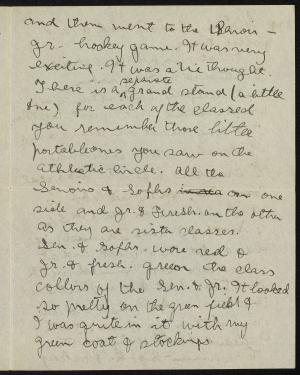 and then went to the Senior -
Jr - hockey game. It was very
exciting. It was a tie thought.
There is a separate grand stand (a little
one) for each of the classes
you remember those little
portable ones you saw on the
athletic circle. All the
Seniors & Sophs on one
side and Jr. & Fresh. on the other
as they are sister classes.
Sen. & Sophs. wore red &
Jr. & fresh. green the class
collors of the Sen. & Jr. It looked
so pretty on the green field &
I was quite in it with my
green coat & stockings